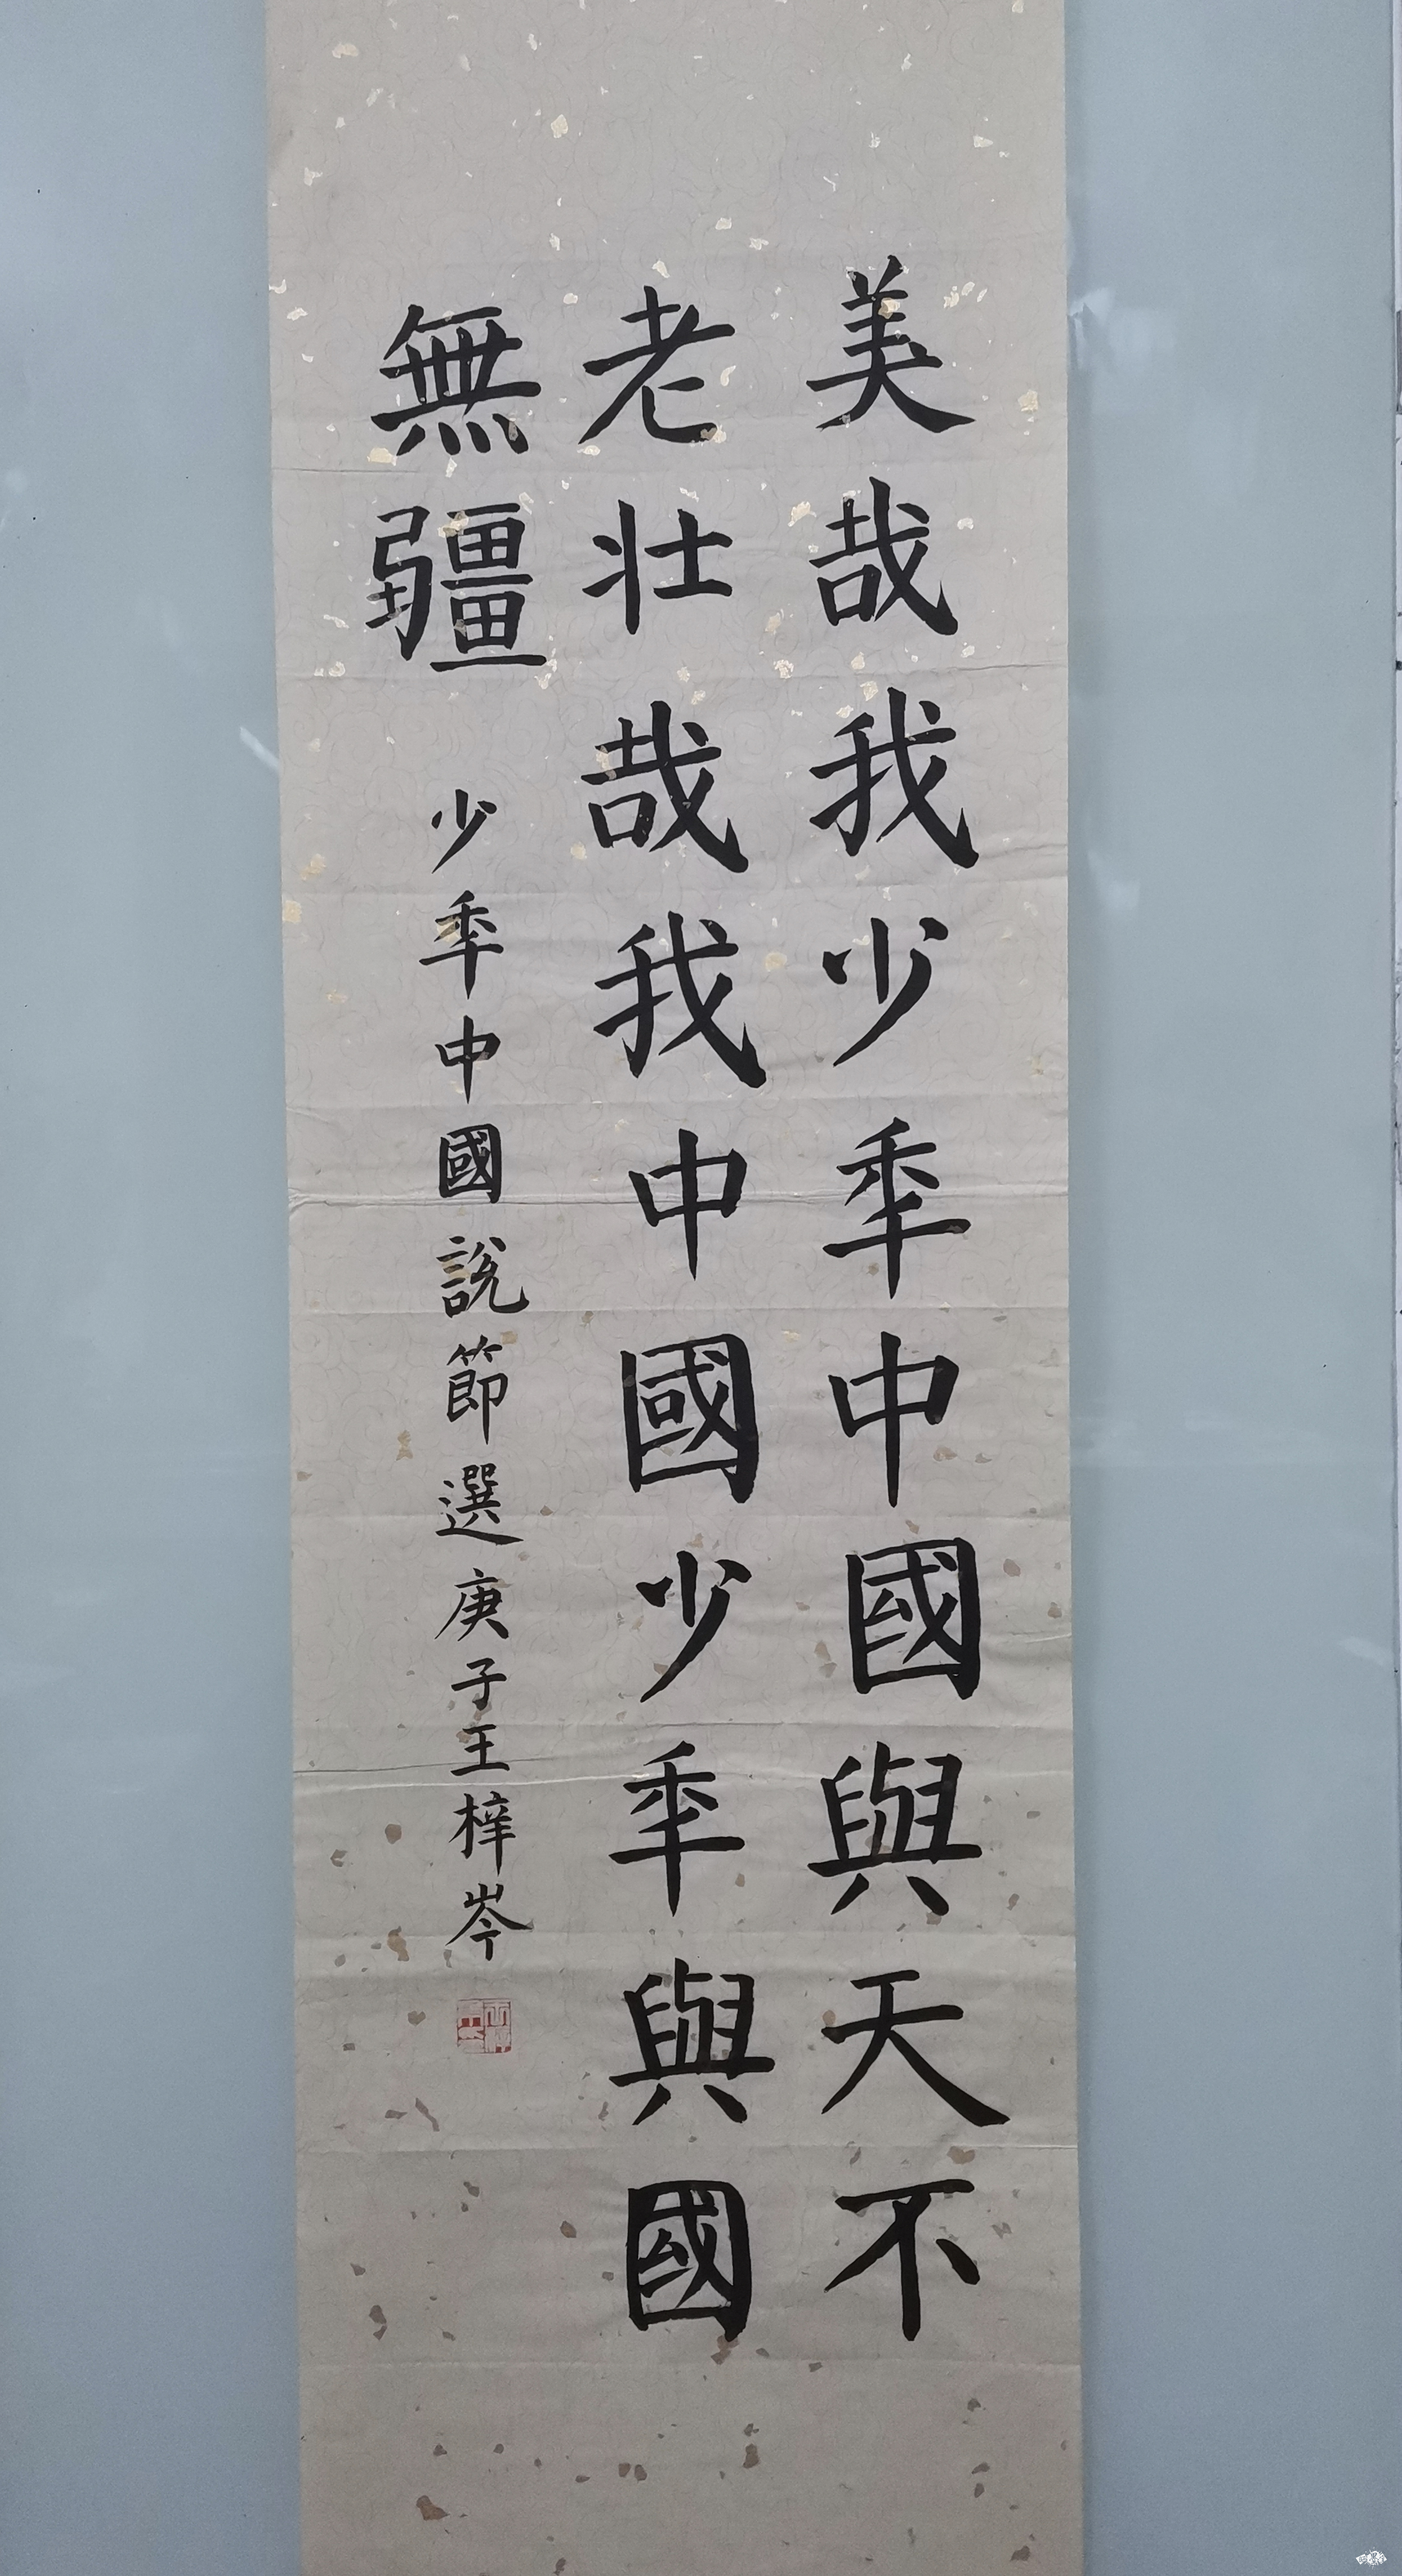 美哉我少秊中國與天不
老壯哉我中國少秊與國
無疆
少秊中國說節選庚子王梓岑